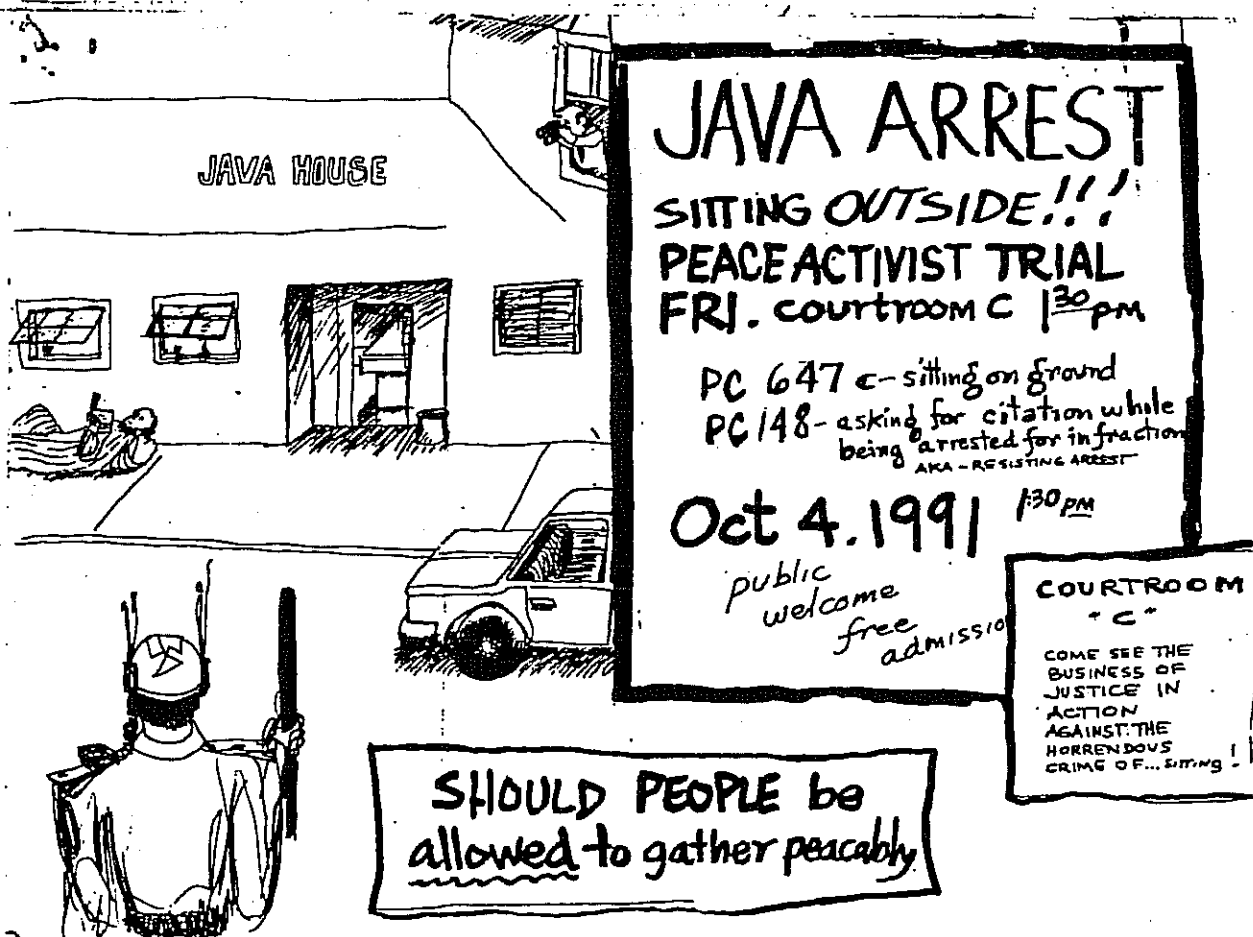 JAVA HOUSE
JAVA ARREST
SITTING OUTSIDE!!!
PEACE ACTIVIST TRIAL
FRI. courtroom C 1 30 pm
PC 647 c - sitting on ground
PC 148 - asking for citation while
being arrested for infraction
AKA - RESISTING ARREST
Oct 4. 1991 1:30 PM
public
welcome
free
admission
COURTROOM
"C"
COME SEE THE
BUSINESS OF
JUSTICE IN
ACTION
AGAINST THE
HORRENDOUS
CRIME OF... SITTING !
SHOULD PEOPLE be
allowed to gather peacably